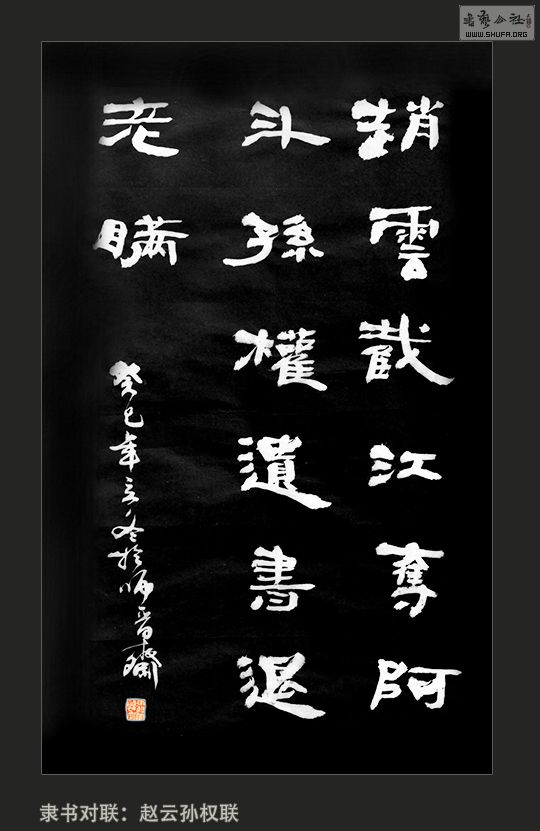 書藝公社
WWW.SHUFA.ORG
趙雲截江奪阿
斗孫權遺書退
老瞞
癸巳年立冬於師晋齋
隶书对联：赵云孙权联